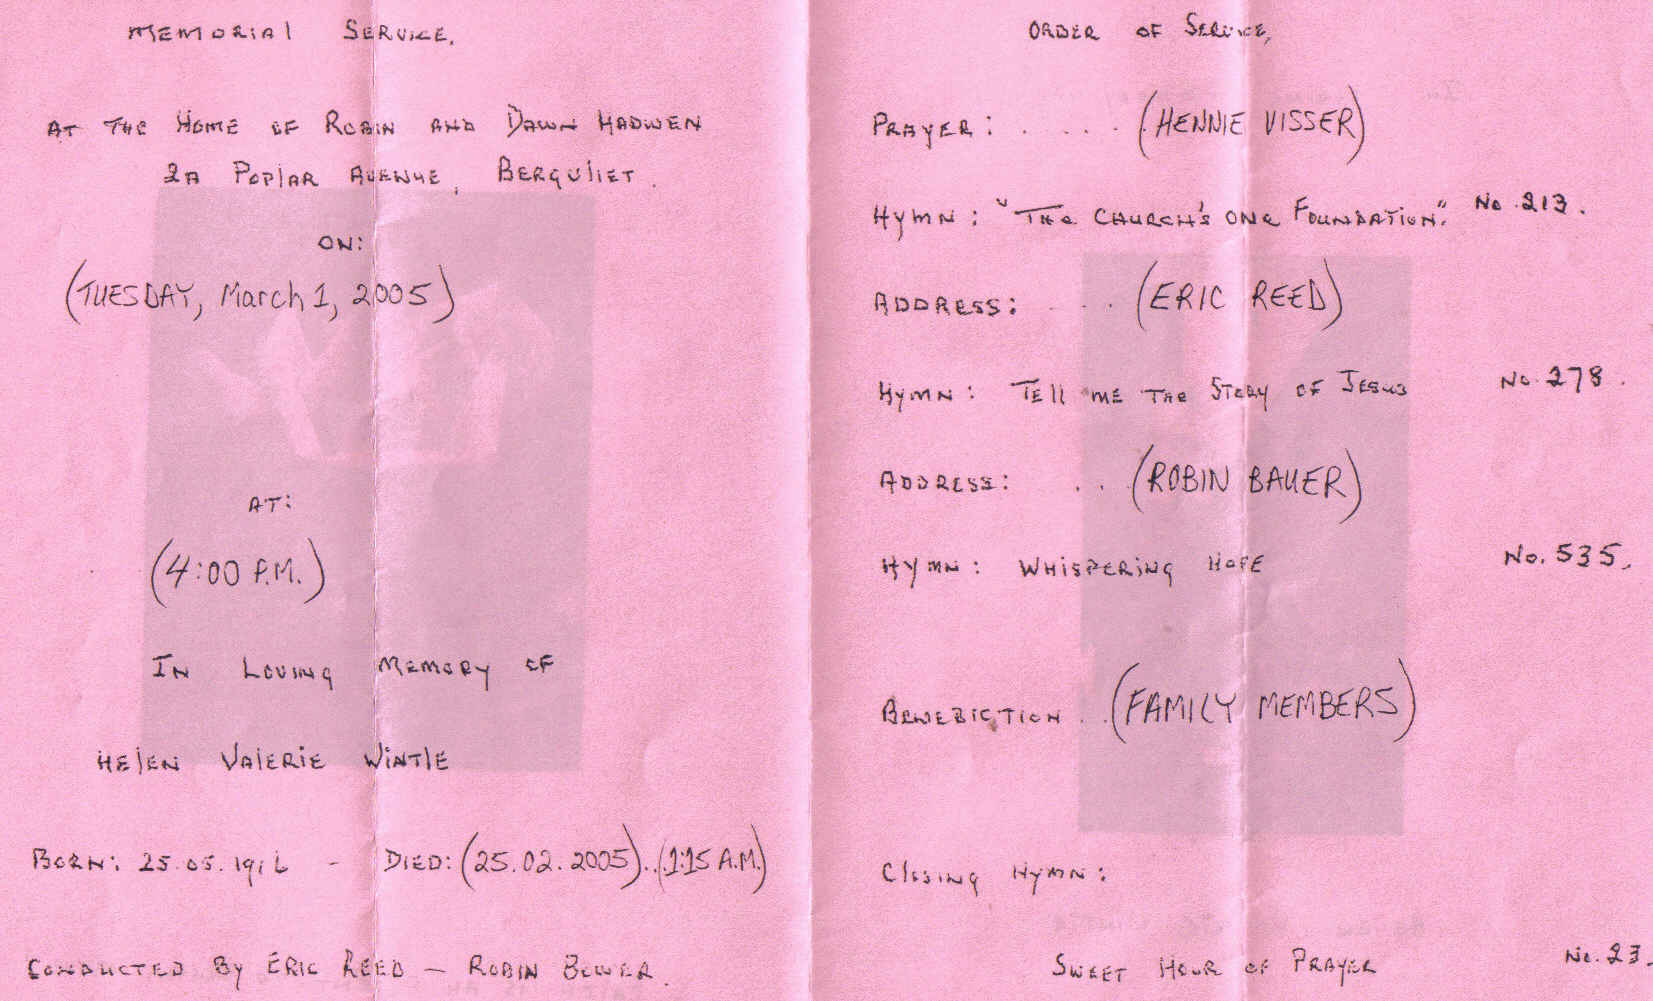 MEMORIAL SERVICE.
AT THE HOME OF ROBIN AND DAWN HADWEN
2A POPLAR AVENUE, BERGVLIET.
ON:
(TUESDAY, March 1, 2005)
AT:
(4:00 P.M.)
IN LOVING MEMORY OF
HELEN VALERIE WINTLE
BORN: 25.05.1916 - DIED: (25.02.2005)..(1:15 A.M.)
CONDUCTED BY ERIC REED — ROBIN BOWER.
ORDER OF SERVICE,
PRAYER: ..... (HENNIE VISSER)
HYMN: "THE CHURCH'S ONE FOUNDATION." No. 213.
ADDRESS: ... (ERIC REED)
HYMN: TELL ME THE STORY OF JESUS No. 278.
ADDRESS: .. (ROBIN BAUER)
HYMN: WHISPERING HOPE No. 535.
BENEDICTION .. (FAMILY MEMBERS)
CLOSING HYMN:
SWEET HOUR OF PRAYER No. 23.